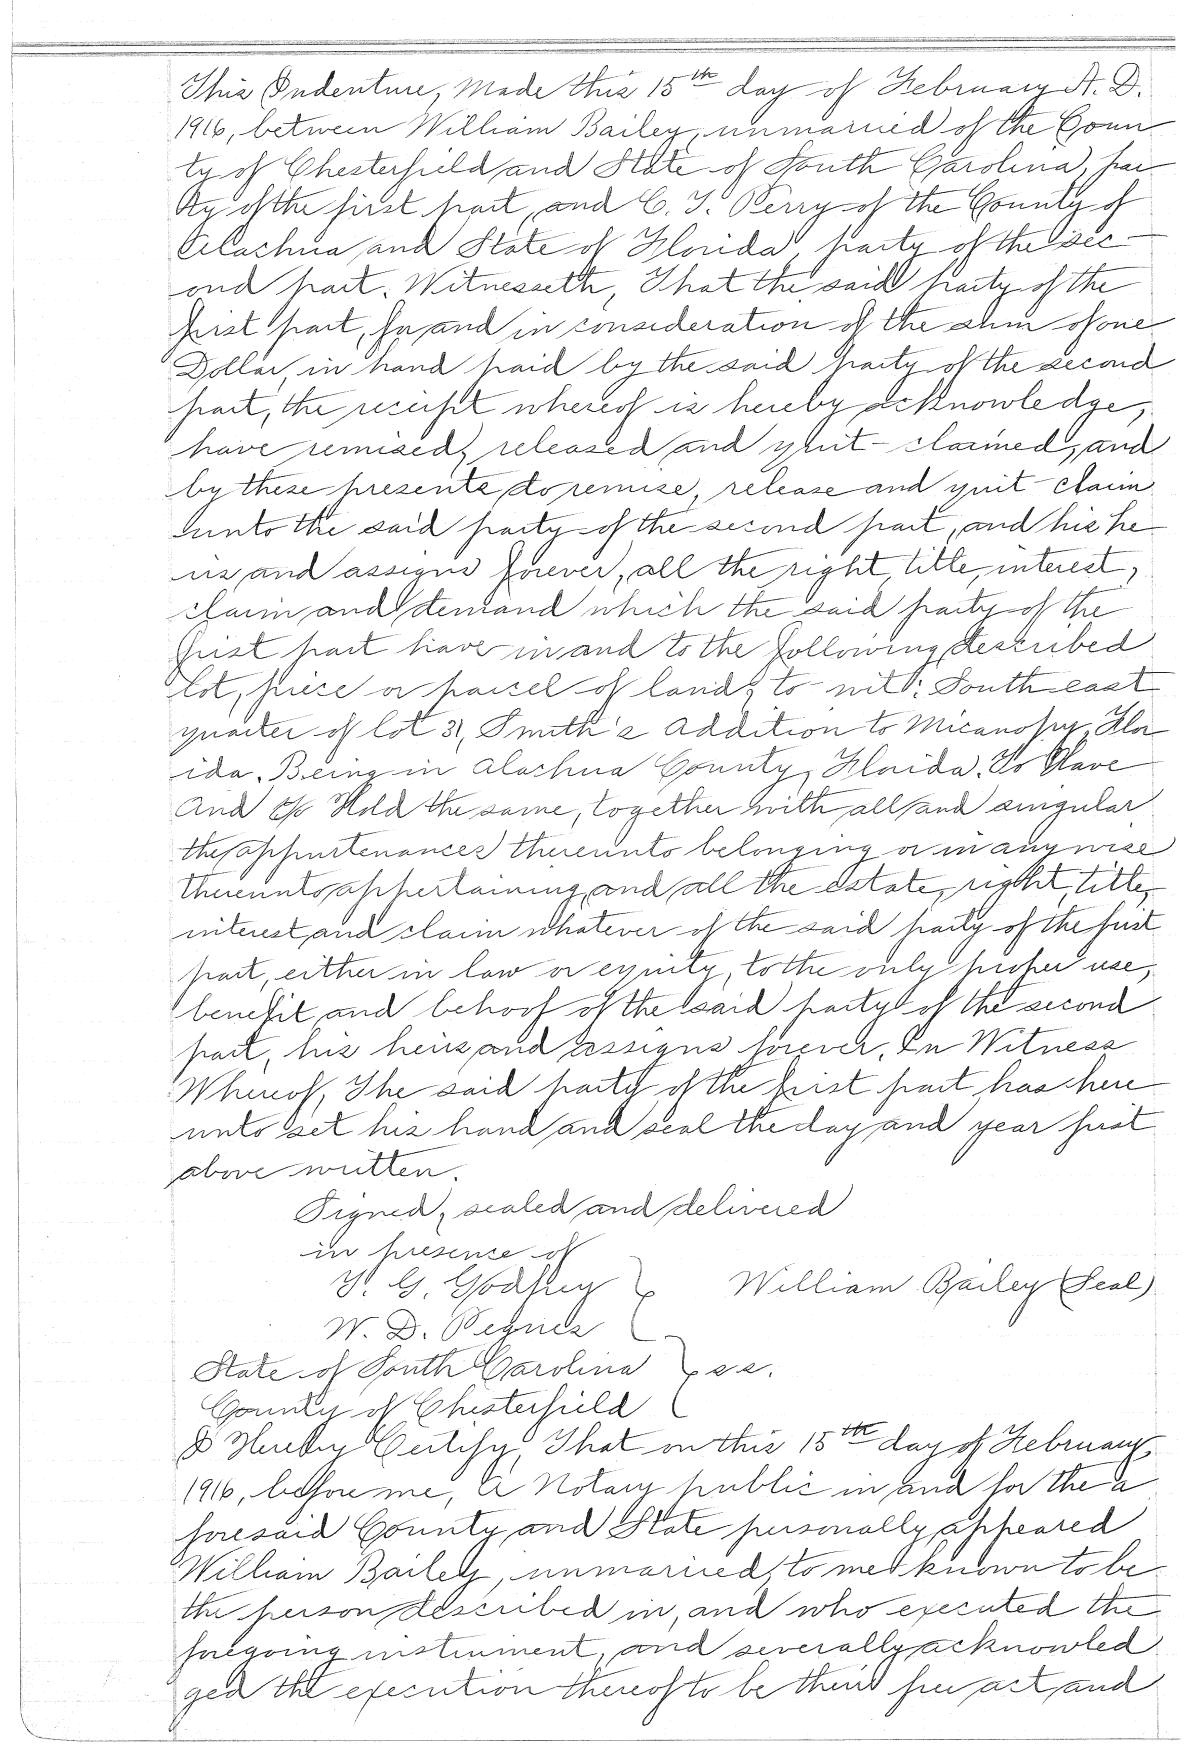 This Indenture, Made this 15th day of February A. D.
1916, between William Bailey, unmarried of the Coun
ty of Chesterfield and State of South Carolina, par
ty of the first part, and C. J. Perry of the County of
Alachua and State of Florida, party of the sec-
ond part. Witnesseth, That the said party of the
first part, for and in consideration of the sum of one
Dollar, in hand paid by the said party of the second
part, the receipt whereof is hereby acknowledge,
have remised, released and quit-claimed, and
by these presents do remise, release and quit-claim
unto the said party of the second part, and his he
irs and assigns forever, all the right, title, interest,
claim and demand which the said party of the
first part have in and to the following described
lot, piece or parcel of land, to-wit: South east
quarter of lot 31, Smith's Addition to Micanopy, Flor
ida. Being in Alachua County, Florida. To Have
And To Hold the same, together with all and singular
the appurtenances thereunto belonging or in anywise
thereunto appertaining, and all the estate, right, title,
interest and claim whatever of the said party of the first
part, either in law or equity, to the only proper use,
benefit and behoof of the said party of the second
part, his heirs and assigns forever. In Witness
Whereof, The said party of the first part has here
unto set his hand and seal the day and year first
above written.
Signed, sealed and delivered
in presence of
G. Godfrey } William Bailey (Seal)
W. D. Pegues
State of South Carolina } ss.
County of Chesterfield
I Hereby Certify, That on this 15th day of February,
1916, before me, A Notary public in and for the a
foresaid County and State personally appeared
William Bailey, unmarried, to me known to be
the person described in, and who executed the
foregoing instrument, and severally acknowled
ged the execution thereof to be their free act and